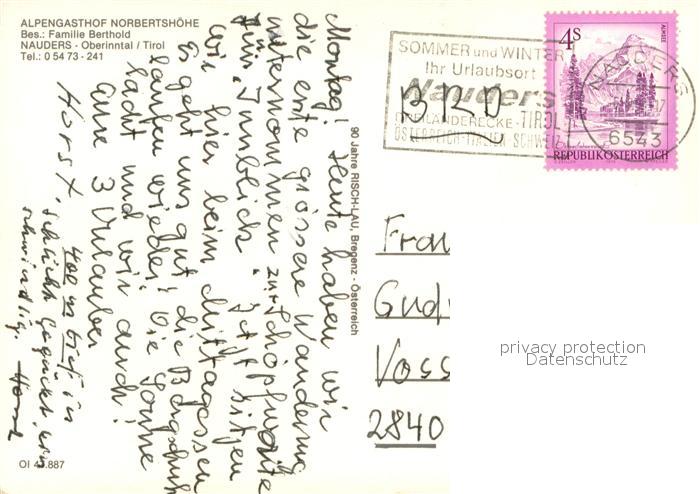 ALPENGASTHOF NORBERTSHÖHE
Bes.: Familie Berthold
NAUDERS - Oberinntal / Tirol
Tel.: 0 54 73 - 241
SOMMER und WINTER
Ihr Urlaubsort
Nauders
DREILÄNDERECKE-TIROL
ÖSTERREICH-ITALIEN-SCHWEIZ
4S
ALMSEE
REPUBLIK ÖSTERREICH
NAUDERS
6543
Montag! Heute haben wir
die erste grössere Wanderung
unternommen zur Schöpfwarte
Innblick. Jetzt sitzen
wir hier beim Mittagessen
Es geht uns gut, die Bergschuh
laufen wieder! Die Sonne
lacht und wir auch!
Eure 3 Urlauber
Horst,
400 m tief in
Schlucht geguckt,
schwindlig.
90 Jahre RISCH-LAU, Bregenz - Österreich
Frau
Gud
Voss
2840
OI 43.887
privacy protection
Datenschutz